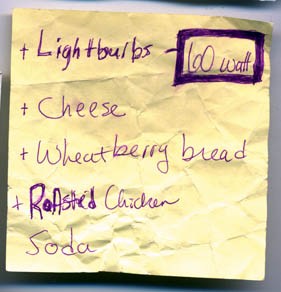 + Lightburbs - 60 watt
+ Cheese
+ Wheatberry bread
+ Roasted Chicken
Soda